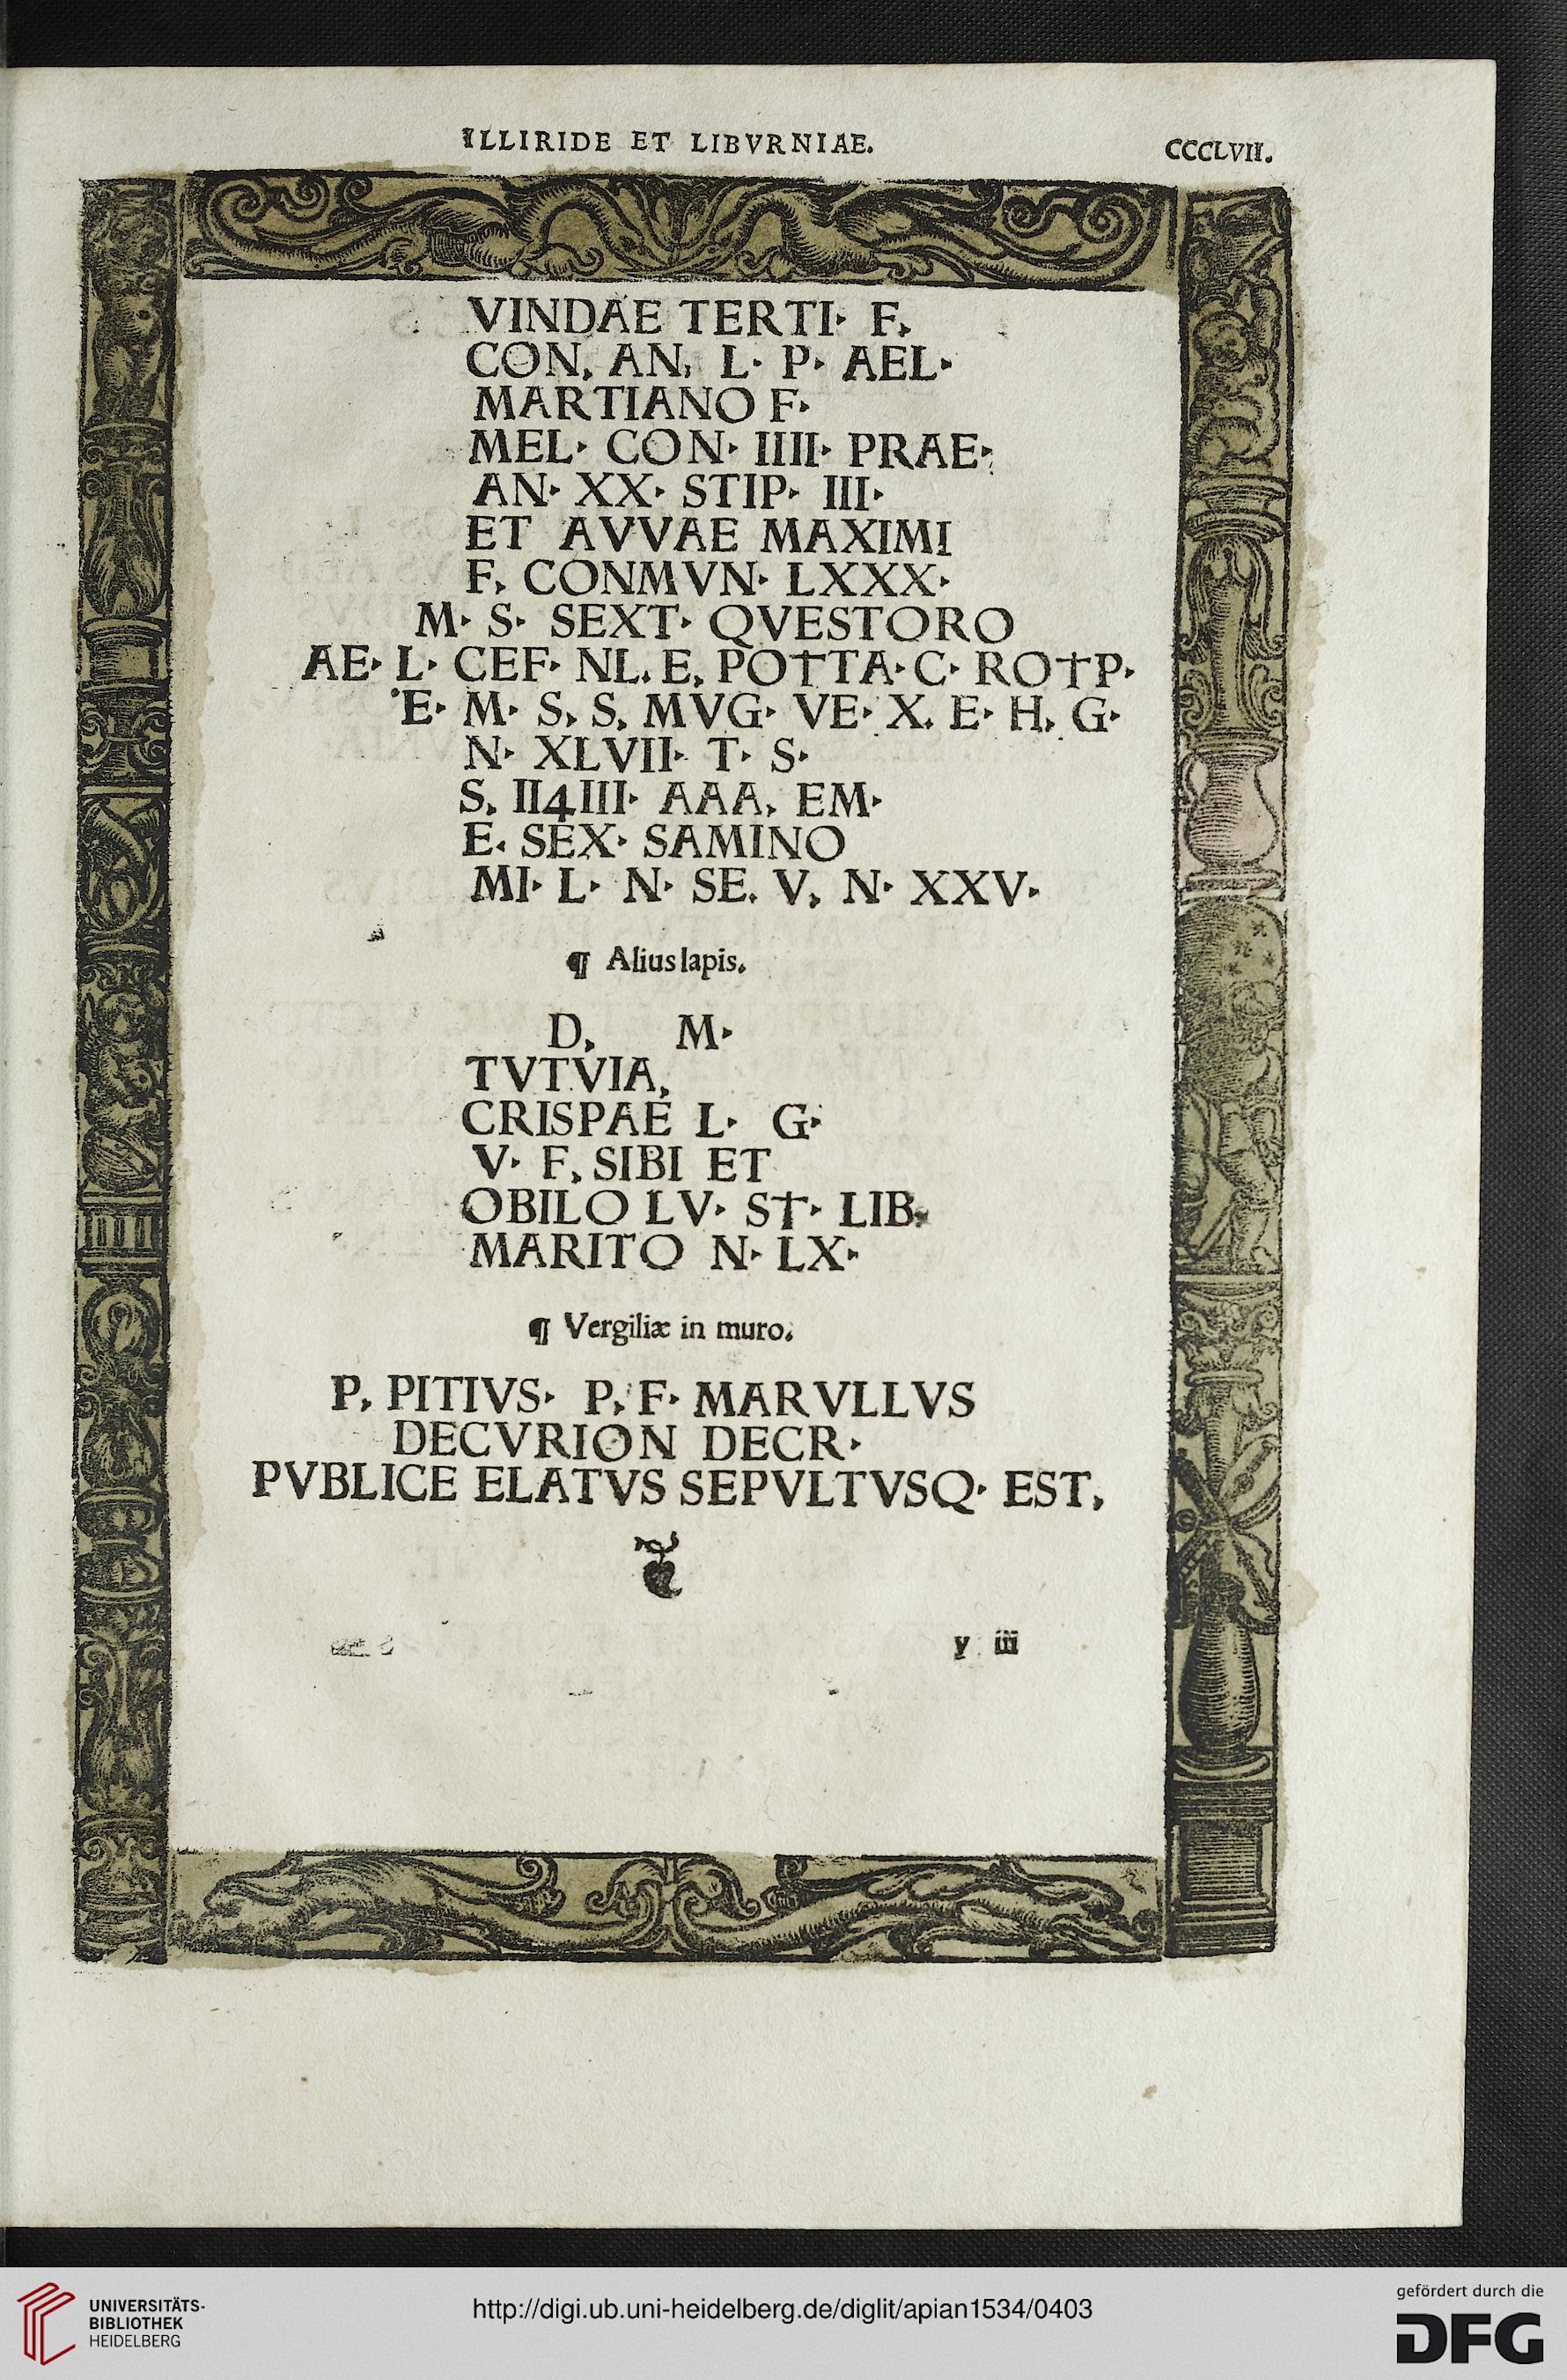 ILLIRIDE ET LIBVRNIAE. CCCLVII.
VINDAE TERTI· F,
CON, AN, L· P· AEL·
MARTIANO F·
MEL· CON· IIII· PRAE·
AN· XX· STIP· III·
ET AVVAE MAXIMI
F, CONMVN· LXXX·
M· S· SEXT· QVESTORO
AE· L· CEF· NL. E, PO†TA· C· RO†P·
E· M· S, S, MVG· VE· X. E· H, G·
N· XLVII· T· S·
S, II4III· AAA, EM·
E. SEX· SAMINO
MI· L· N· SE. V, N· XXV·
¶ Alius lapis.
D, M·
TVTVIA,
CRISPAE L· G·
V· F, SIBI ET
OBILO LV· S†· LIB.
MARITO N· LX·
¶ Vergiliæ in muro.
P, PITIVS· P, F· MARVLLVS
DECVRION DECR·
PVBLICE ELATVS SEPVLTVSQ· EST,
y iii
UNIVERSITÄTS-
BIBLIOTHEK
HEIDELBERG
http://digi.ub.uni-heidelberg.de/diglit/apian1534/0403
gefördert durch die
DFG